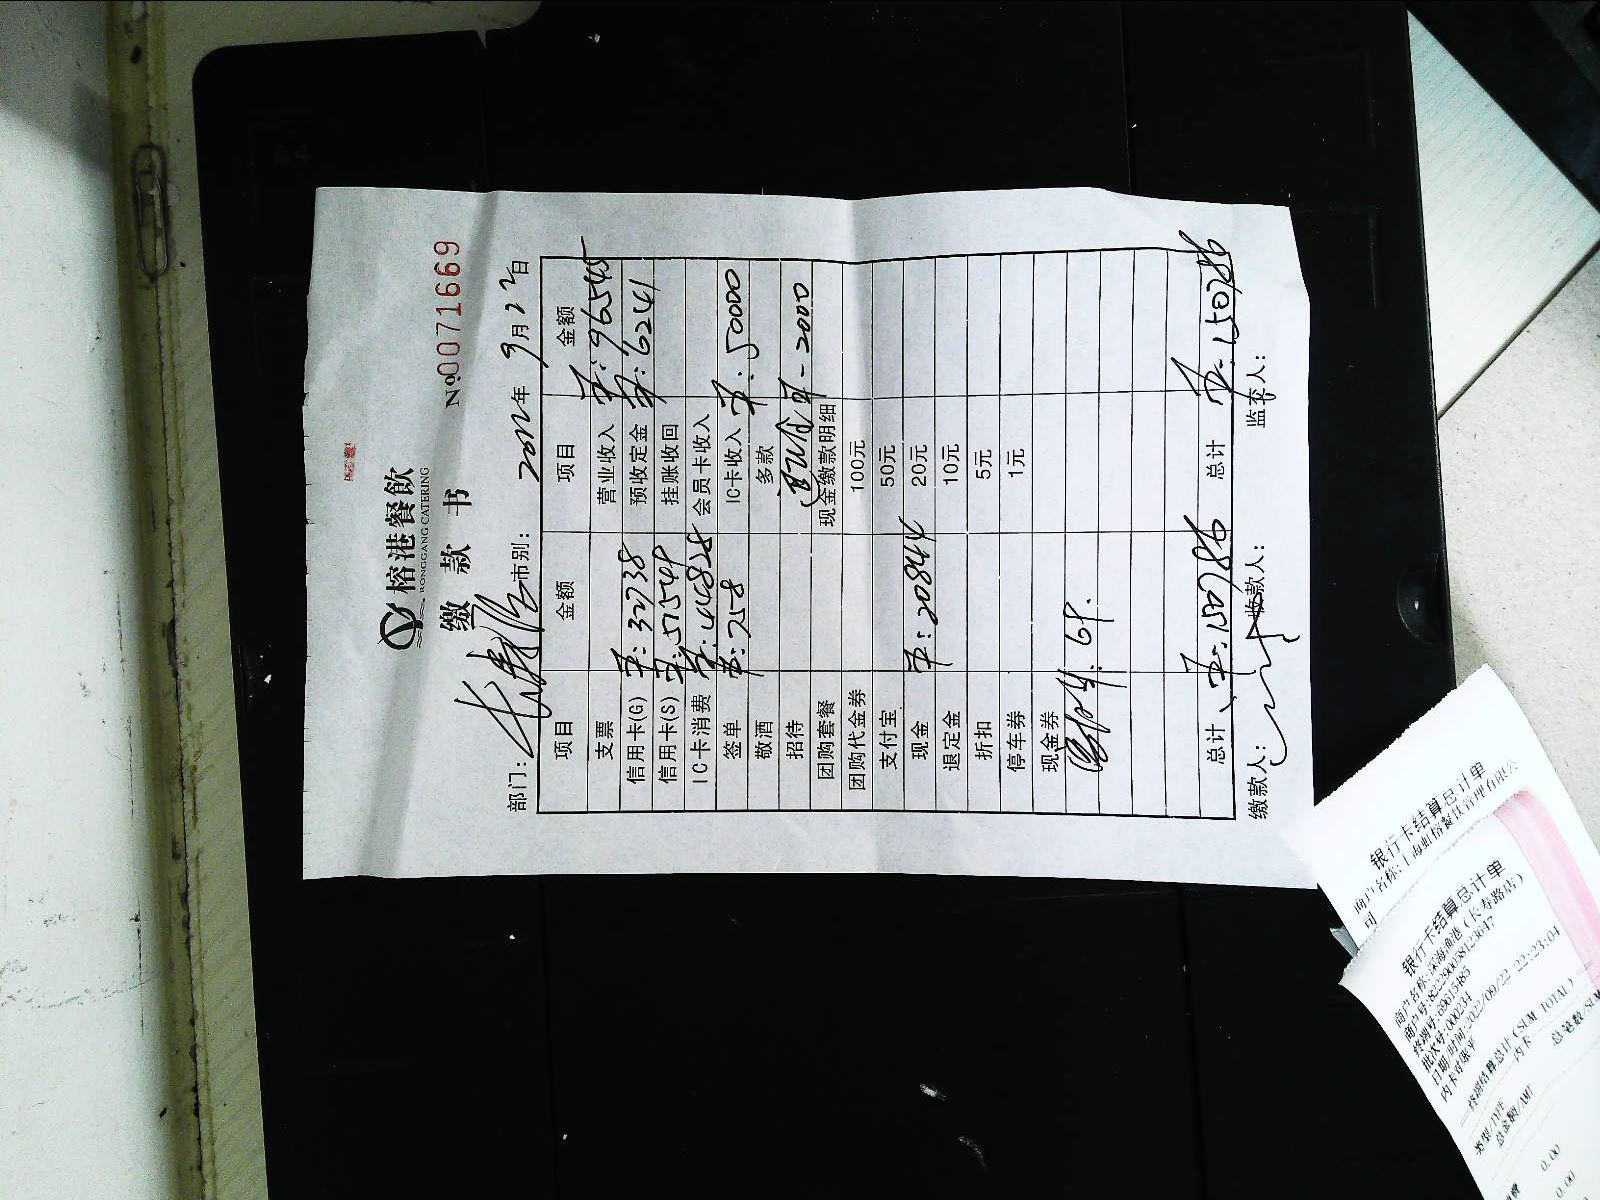 榕港餐飲
RONGGANG CATERING
缴 款 书
No.0071669
部门：长寿 市别： 2022年 9月22日
项目 金额 项目 金额
支票 营业收入 平：96545
信用卡(G) 平：32738 预收定金 平：6241
信用卡(S) 平：51549 挂账收回
IC卡消费 平：44828 会员卡收入
签单 平：758 IC卡收入 平：50000
敬酒 多款
招待 退订金 平-2000
团购套餐 现金缴款明细
团购代金券 100元
支付宝 50元
现金 平：20844 20元
退定金 10元
折扣 5元
停车券 1元
现金券
：69.
总计 平：150786 总计 平：150786
缴款人： 收款人： 监交人：
银行卡结算总计单
商户名称:上海虹榕餐饮管理有限公
司
银行卡结算总计单
商户名称:深海渔港（长寿路店）
商户号:822290058123647
终端号:69615485
批次号:000234
日期/时间:2022/09/22 22:23:04
内卡对账平
终端结算总计(SUM TOTAL)
内卡
类型/TYPE 总笔数/SUM
总金额/AMT
0.00
0.00